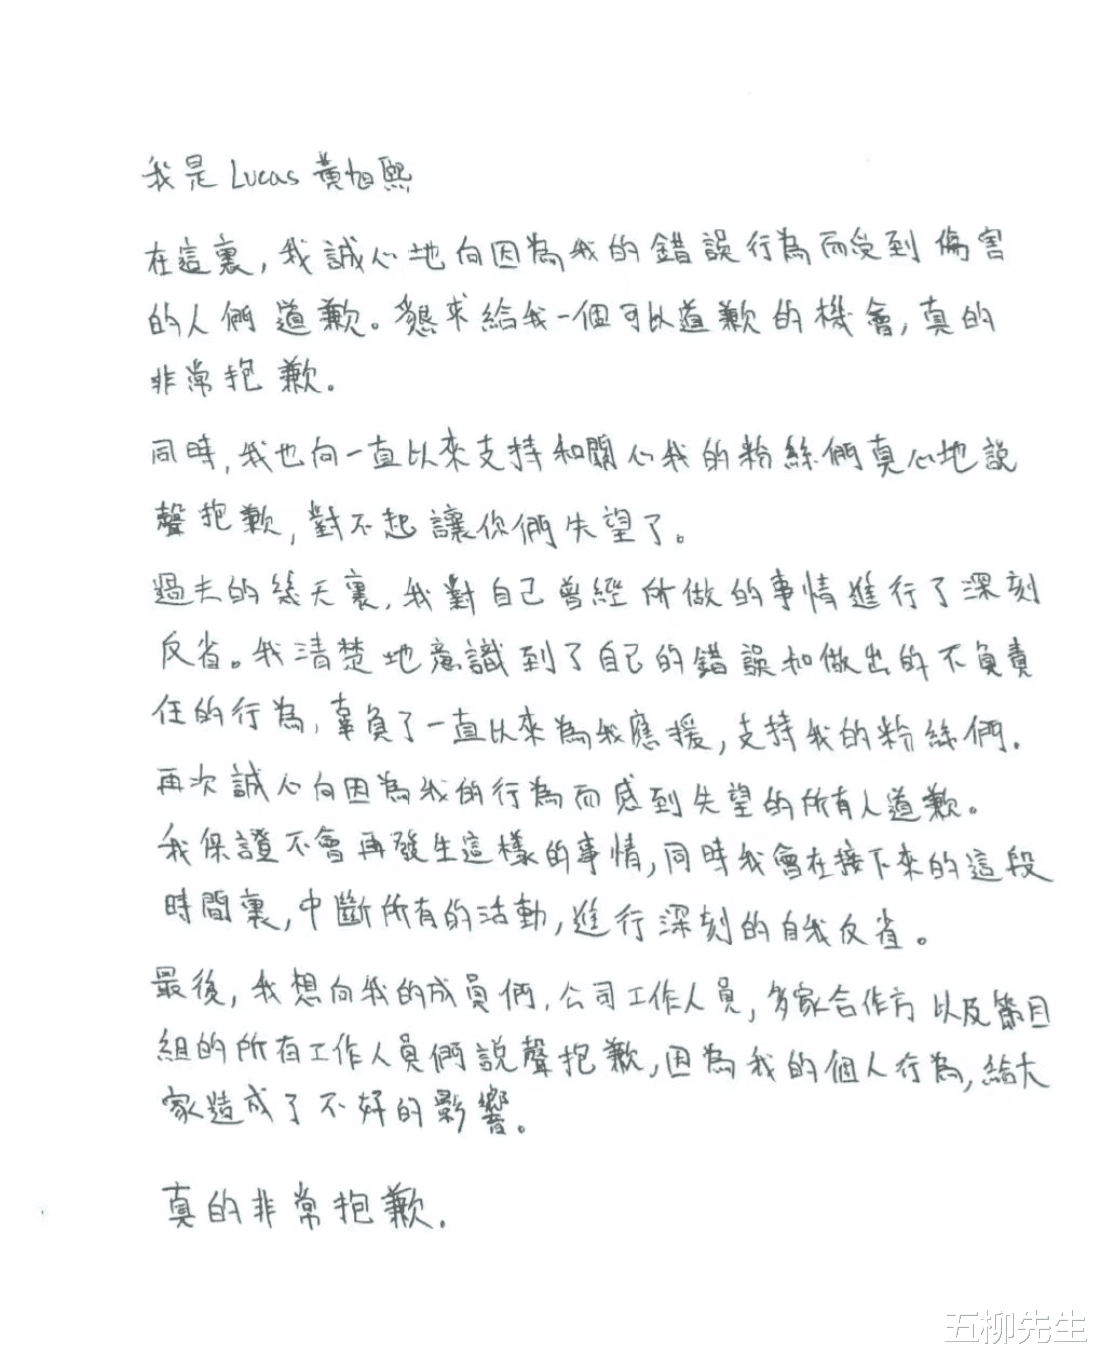 我是Lucas黃旭熙
在這裏，我誠心地向因為我的錯誤行為而受到傷害
的人們道歉。懇求給我一個可以道歉的機會，真的
非常抱歉。
同時，我也向一直以來支持和關心我的粉絲們真心地說
聲抱歉，對不起讓你們失望了。
過去的幾天裏，我對自己曾經所做的事情進行了深刻
反省。我清楚地意識到了自己的錯誤和做出的不負責
任的行為，辜負了一直以來為我應援，支持我的粉絲們.
再次誠心向因為我的行為而感到失望的所有人道歉。
我保證不會再發生這樣的事情，同時我會在接下來的這段
時間裏，中斷所有的活動，進行深刻的自我反省。
最後，我想向我的成員們，公司工作人員，多家合作方以及節目
組的所有工作人員們說聲抱歉，因為我的個人行為，給大
家造成了不好的影響。
真的非常抱歉.
五柳先生